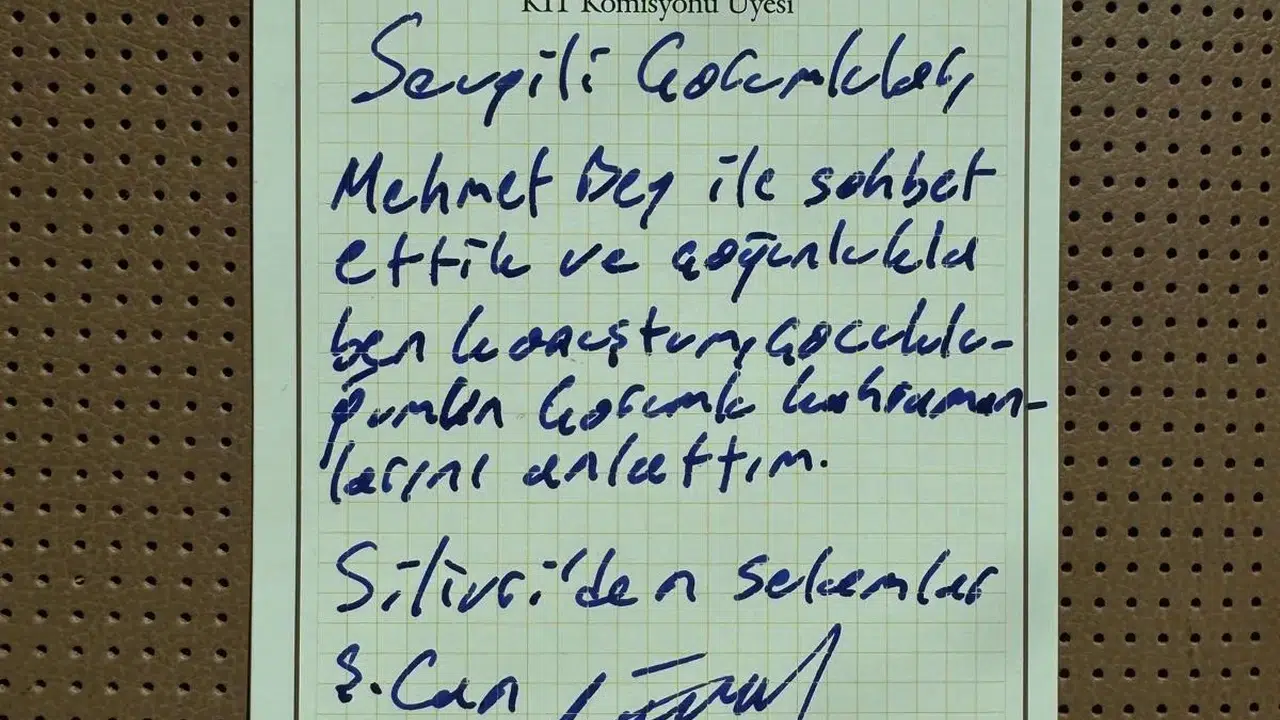 KİT Komisyonu Üyesi
Sevgili Çorumlular,
Mehmet Bey ile sohbet
ettik ve çoğunlukla
ben konuştum, çocuklu-
ğumun Çorumlu kahraman-
larını anlattım.
Silivri'den selamlar
Ş. Can